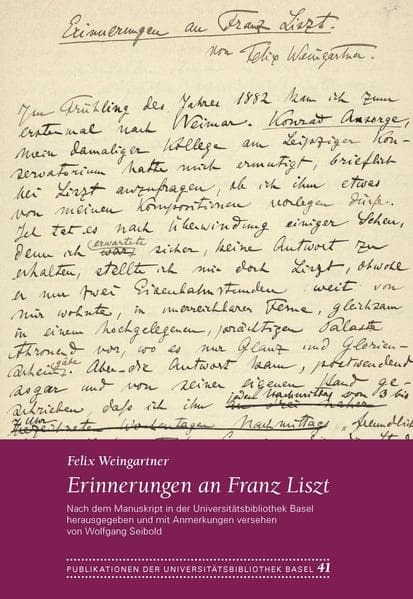 Erinnerungen an Franz Liszt.
von Felix Weingartner.
Im Frühling des Jahres 1882 kam ich zum
erstenmal nach Weimar. Konrad Ansorge,
mein damaliger Kollege am Leipziger Kon-
servatorium hatte mich ermutigt, brieflich
bei Liszt anzufragen, ob ich ihm etwas
von meinen Kompositionen vorlegen dürfe.
Ich tat es nach Überwindung einiger Scheu,
denn ich erwartete war sicher, keine Antwort zu
erhalten, stellte ich mir doch Liszt, obwohl
er nur zwei Eisenbahnstunden weit von
mir wohnte, in unerreichbarer Ferne, gleichsam
in einem hochgelegenen, prächtigen Palaste
thronend vor, wo es nur Glanz und Glorien-
gäbe. Aber die Antwort kam, postwendend
sogar und von seiner eigenen Hand ge-
schrieben, daß ich ihn jeden Nachmittag von 3 bis
Uhr Wochentagen Nachmittags „freundlich
Felix Weingartner
Erinnerungen an Franz Liszt
Nach dem Manuskript in der Universitätsbibliothek Basel
herausgegeben und mit Anmerkungen versehen
von Wolfgang Seibold
PUBLIKATIONEN DER UNIVERSITÄTSBIBLIOTHEK BASEL 41